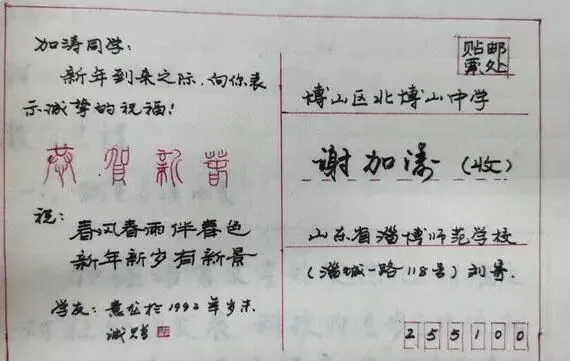 加涛同学:
新年到来之际,向你表
示诚挚的祝福!
恭贺新
祝:
春风春雨伴春色
新年新岁有新景
学友: 于1992年岁末
诚
贴邮
票处
博山区北博山中学
谢加涛 (收)
山东省淄博师范学校
(淄城一路118号) 刘寄
255100